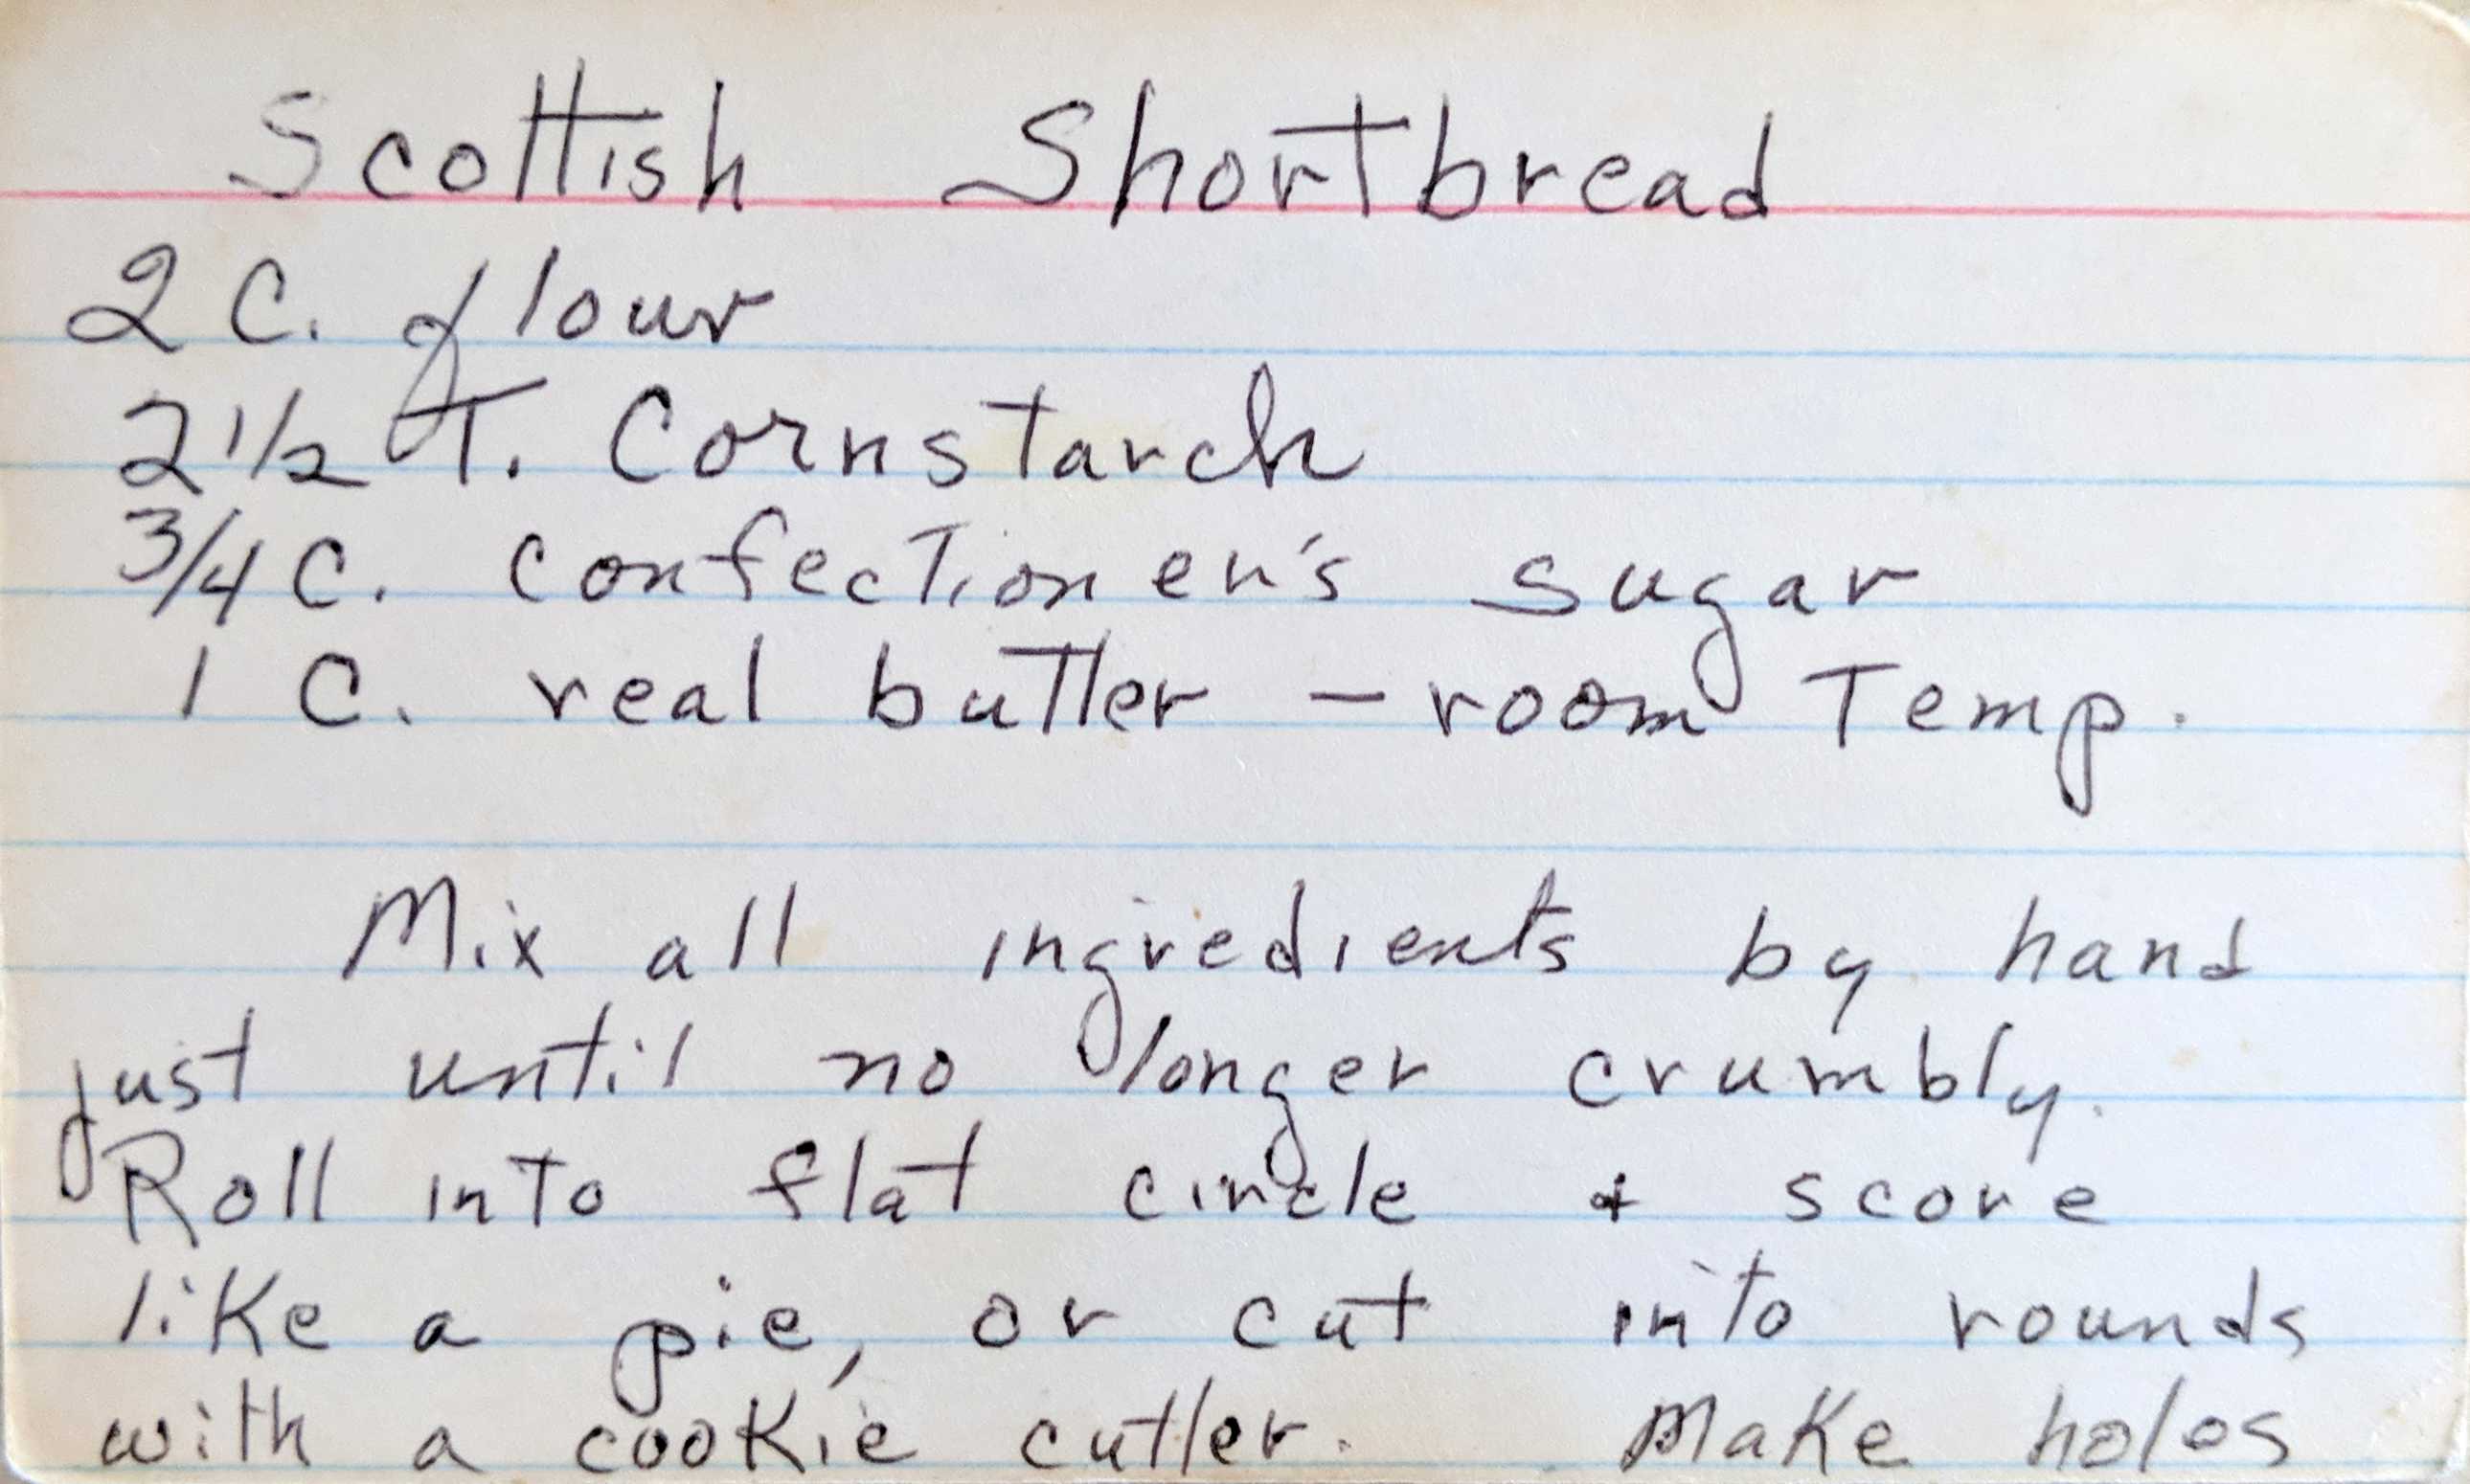 Scottish Shortbread
2 C. flour
2 1/2 T. Cornstarch
3/4 C. confectioner's sugar
1 C. real butter – room Temp.
Mix all ingredients by hand
just until no longer crumbly.
Roll into flat circle & score
like a pie, or cut into rounds
with a cookie cutter. Make holes